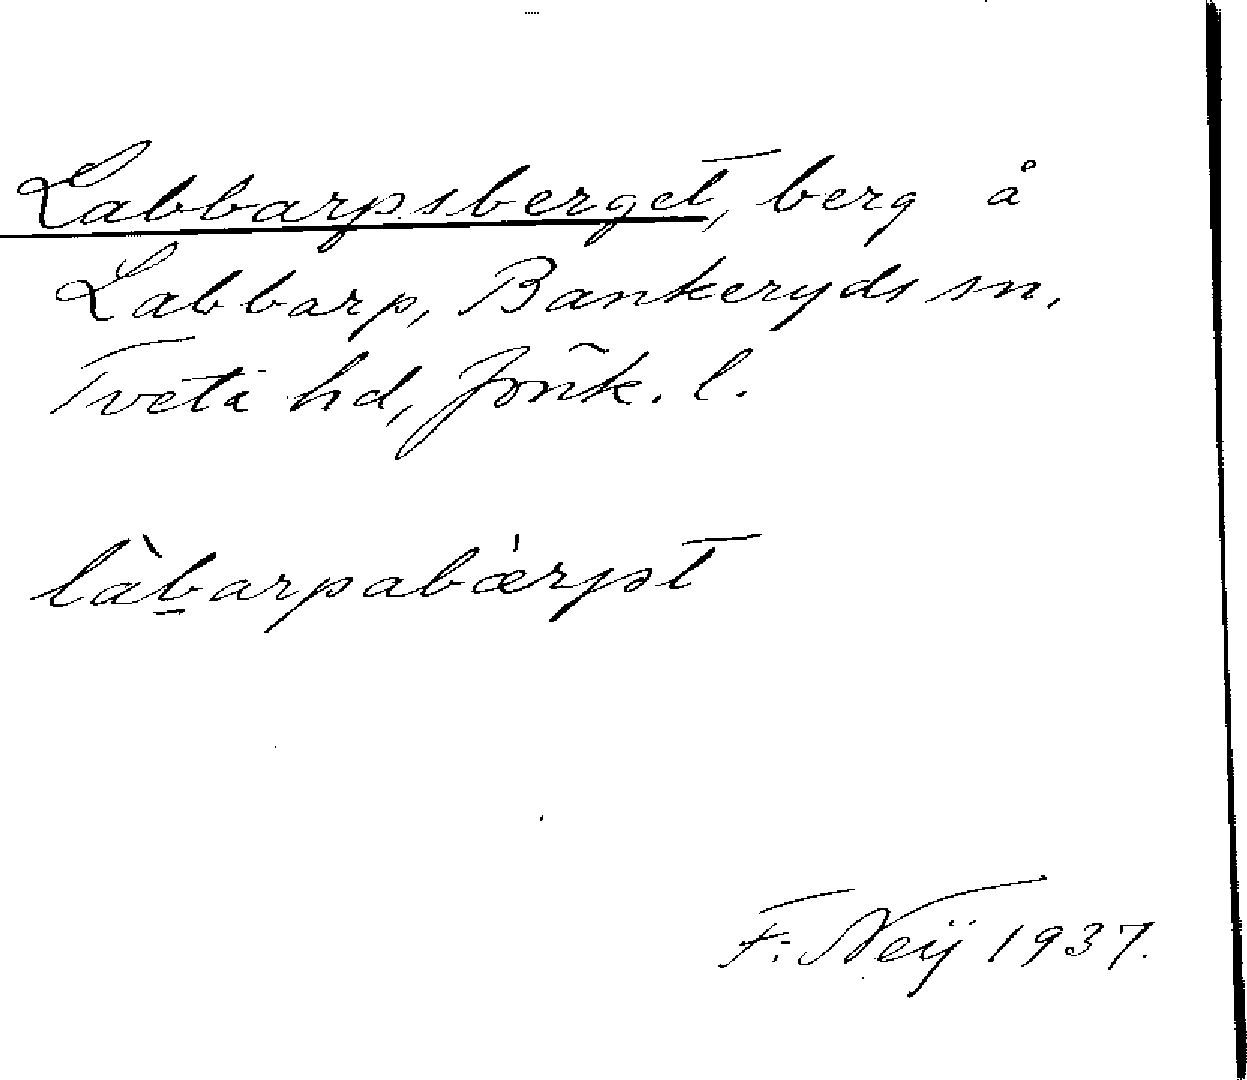 Labbarpsberget, berg å
Labbarp, Bankeryds sn,
Tveta hd, Jönk. l.
làb̲arpabæ̍rjət
F. Neij 1937.